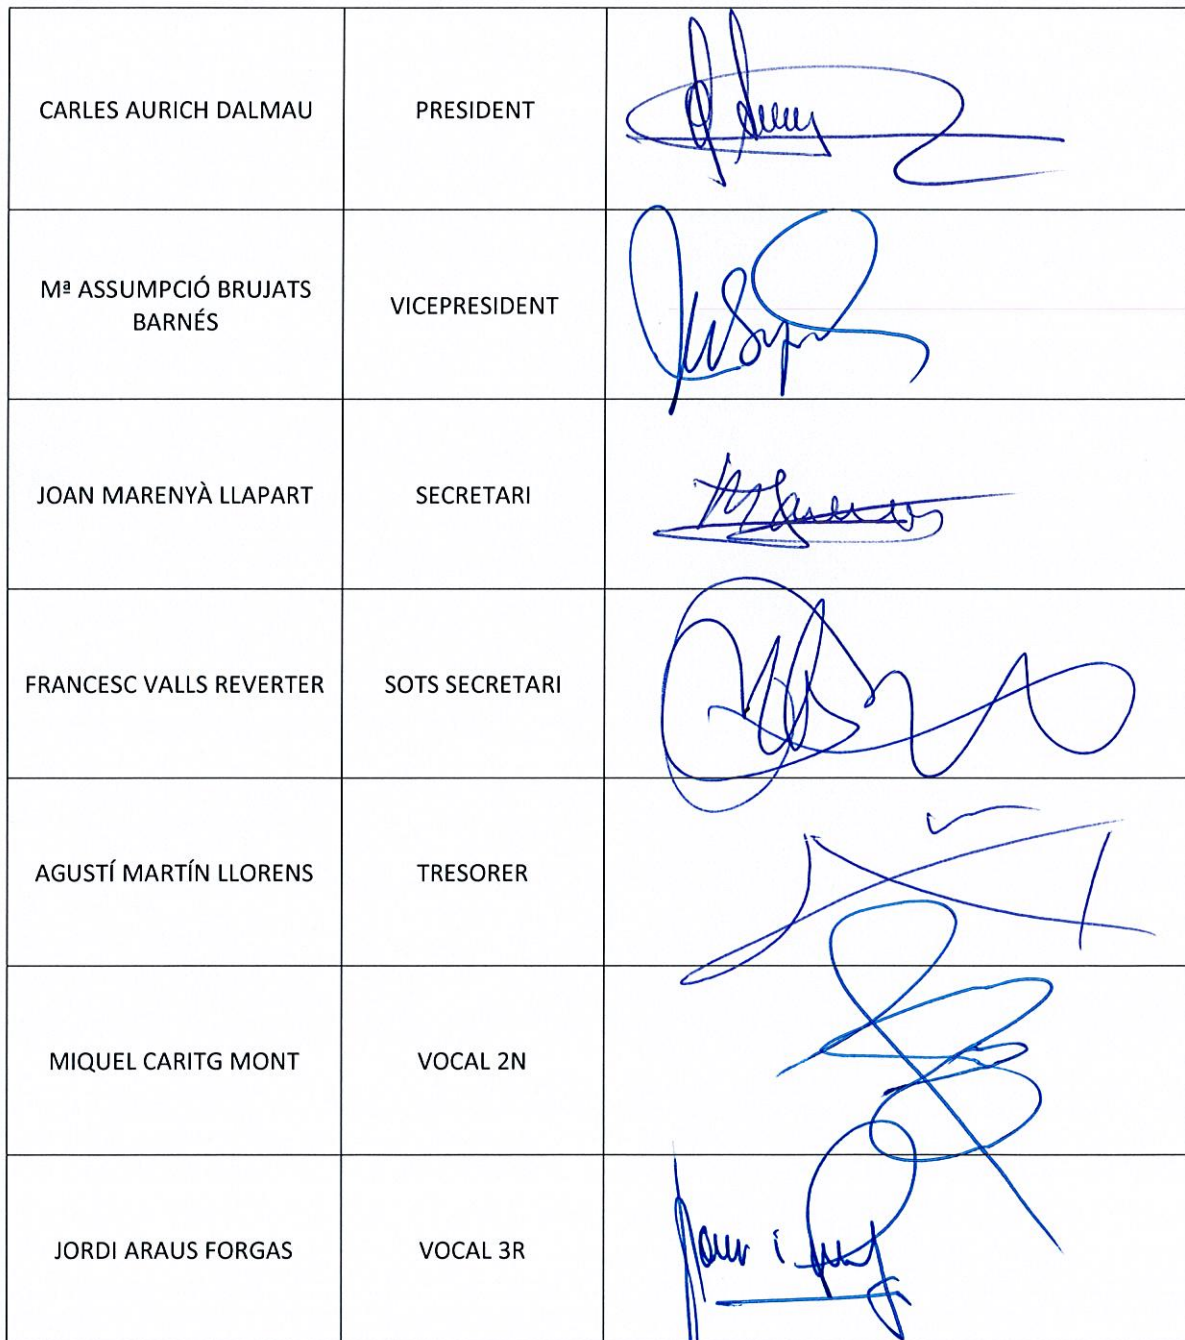 CARLES AURICH DALMAU
PRESIDENT
Mª ASSUMPCIÓ BRUJATS
BARNÉS
VICEPRESIDENT
JOAN MARENYÀ LLAPART
SECRETARI
FRANCESC VALLS REVERTER
SOTS SECRETARI
AGUSTÍ MARTÍN LLORENS
TRESORER
MIQUEL CARITG MONT
VOCAL 2N
JORDI ARAUS FORGAS
VOCAL 3R